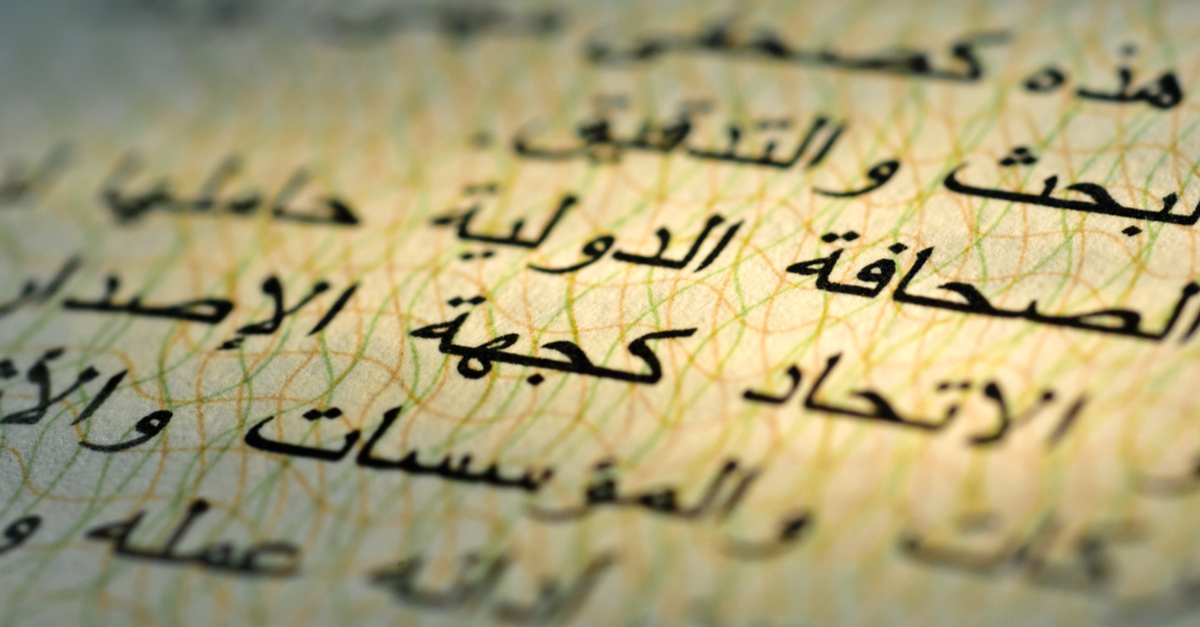 هذه كصحفي
لبحث و التدقيق.
الصحافة الدولية حاملها
الاتحاد كجهة الإصدار
والمؤسسات و
عمله و